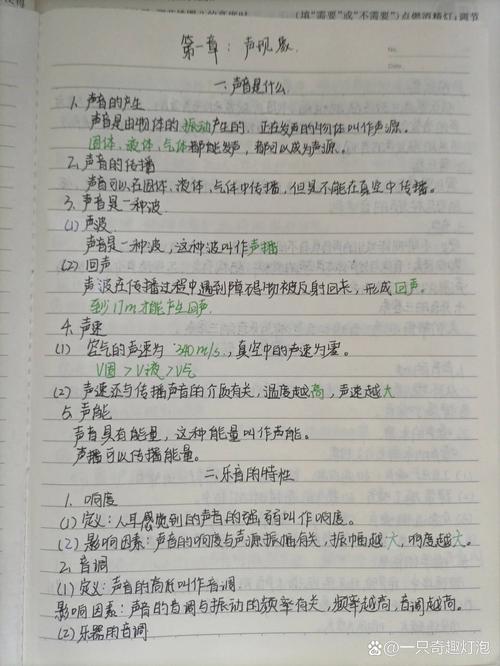 (填"需要"或"不需要")点燃酒精灯;调节
第一章:声现象.
No.
Date.
一.声音是什么
1. 声音的产生
声音是由物体的振动产生的,正在发声的物体叫作声源。
固体、液体、气体都能发声,都可以成为声源。
2.声音的传播
声音可以在固体、液体、气体中传播,但是不能在真空中传播。
3.声音是一种波
(1)声波
声音是一种波,这种波叫作声播
(2)回声
声波在传播过程中遇到障碍物被反射回来,形成回声。
到17m才能产生回声.
4.声速
(1) 空气的声速为340m/s,真空中的声速为零。
V固>V液>V气
(2) 声速还与传播声音的介质有关,温度越高,声速越大
5.声能
声音具有能量,这种能量叫作声能。
声播可以传播能量。
二.乐音的特性
1.响度
(1)定义:人耳感觉到的声音的强弱叫作响度。
(2)影响因素:声音的响度与声源振幅有关,振幅越大,响度越大。
2.音调
(1)定义:声音的高低叫作音调
影响因素:声音的音调与振动的频率有关,频率越高,音调越高。
(2)乐器的音调
一只奇趣灯泡